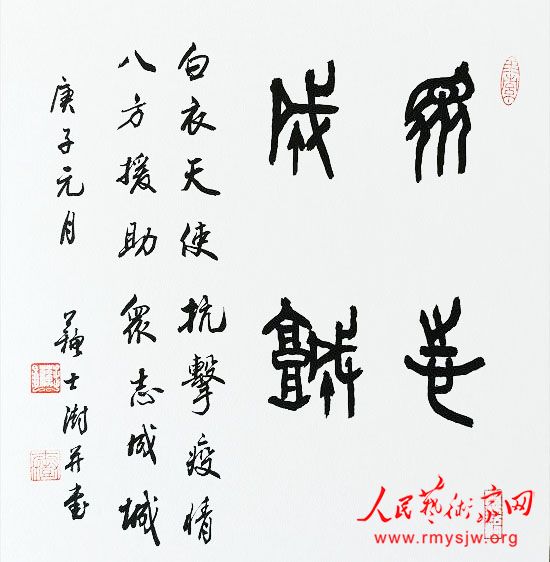 眾志
成城
白衣天使抗擊疫情
八方援助眾志成城
庚子元月 蘇士澍并書
人民藝術家网
www.rmysjw.org